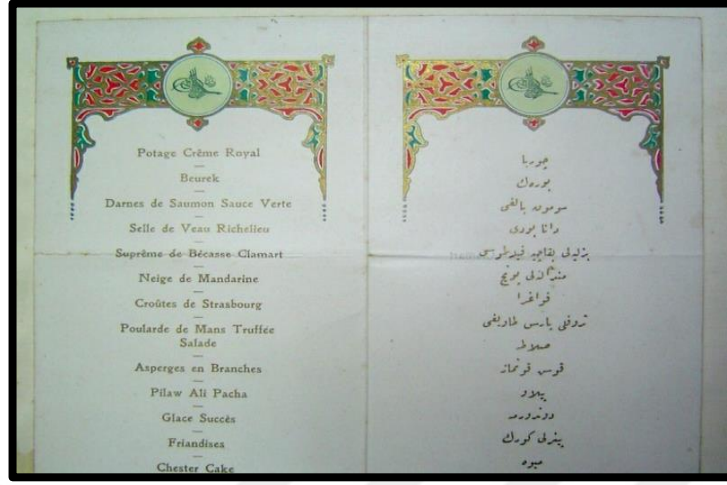 Potage Crème Royal
Beurek
Darnes de Saumon Sauce Verte
Selle de Veau Richelieu
Suprême de Bécasse Clamart
Neige de Mandarine
Croûtes de Strasbourg
Poularde de Mans Truffée
Salade
Asperges en Branches
Pilaw Ali Pacha
Glace Succès
Friandises
Chester Cake
چوربا
بورەك
سومون بالغی
دانا بودی
بزلیلی
پونچ
فواغرا
تروفلی پارس طاویغی
صلاطه
قوش قونماز
پیلاو
دوندورمه
پینرلی کورك
میوه